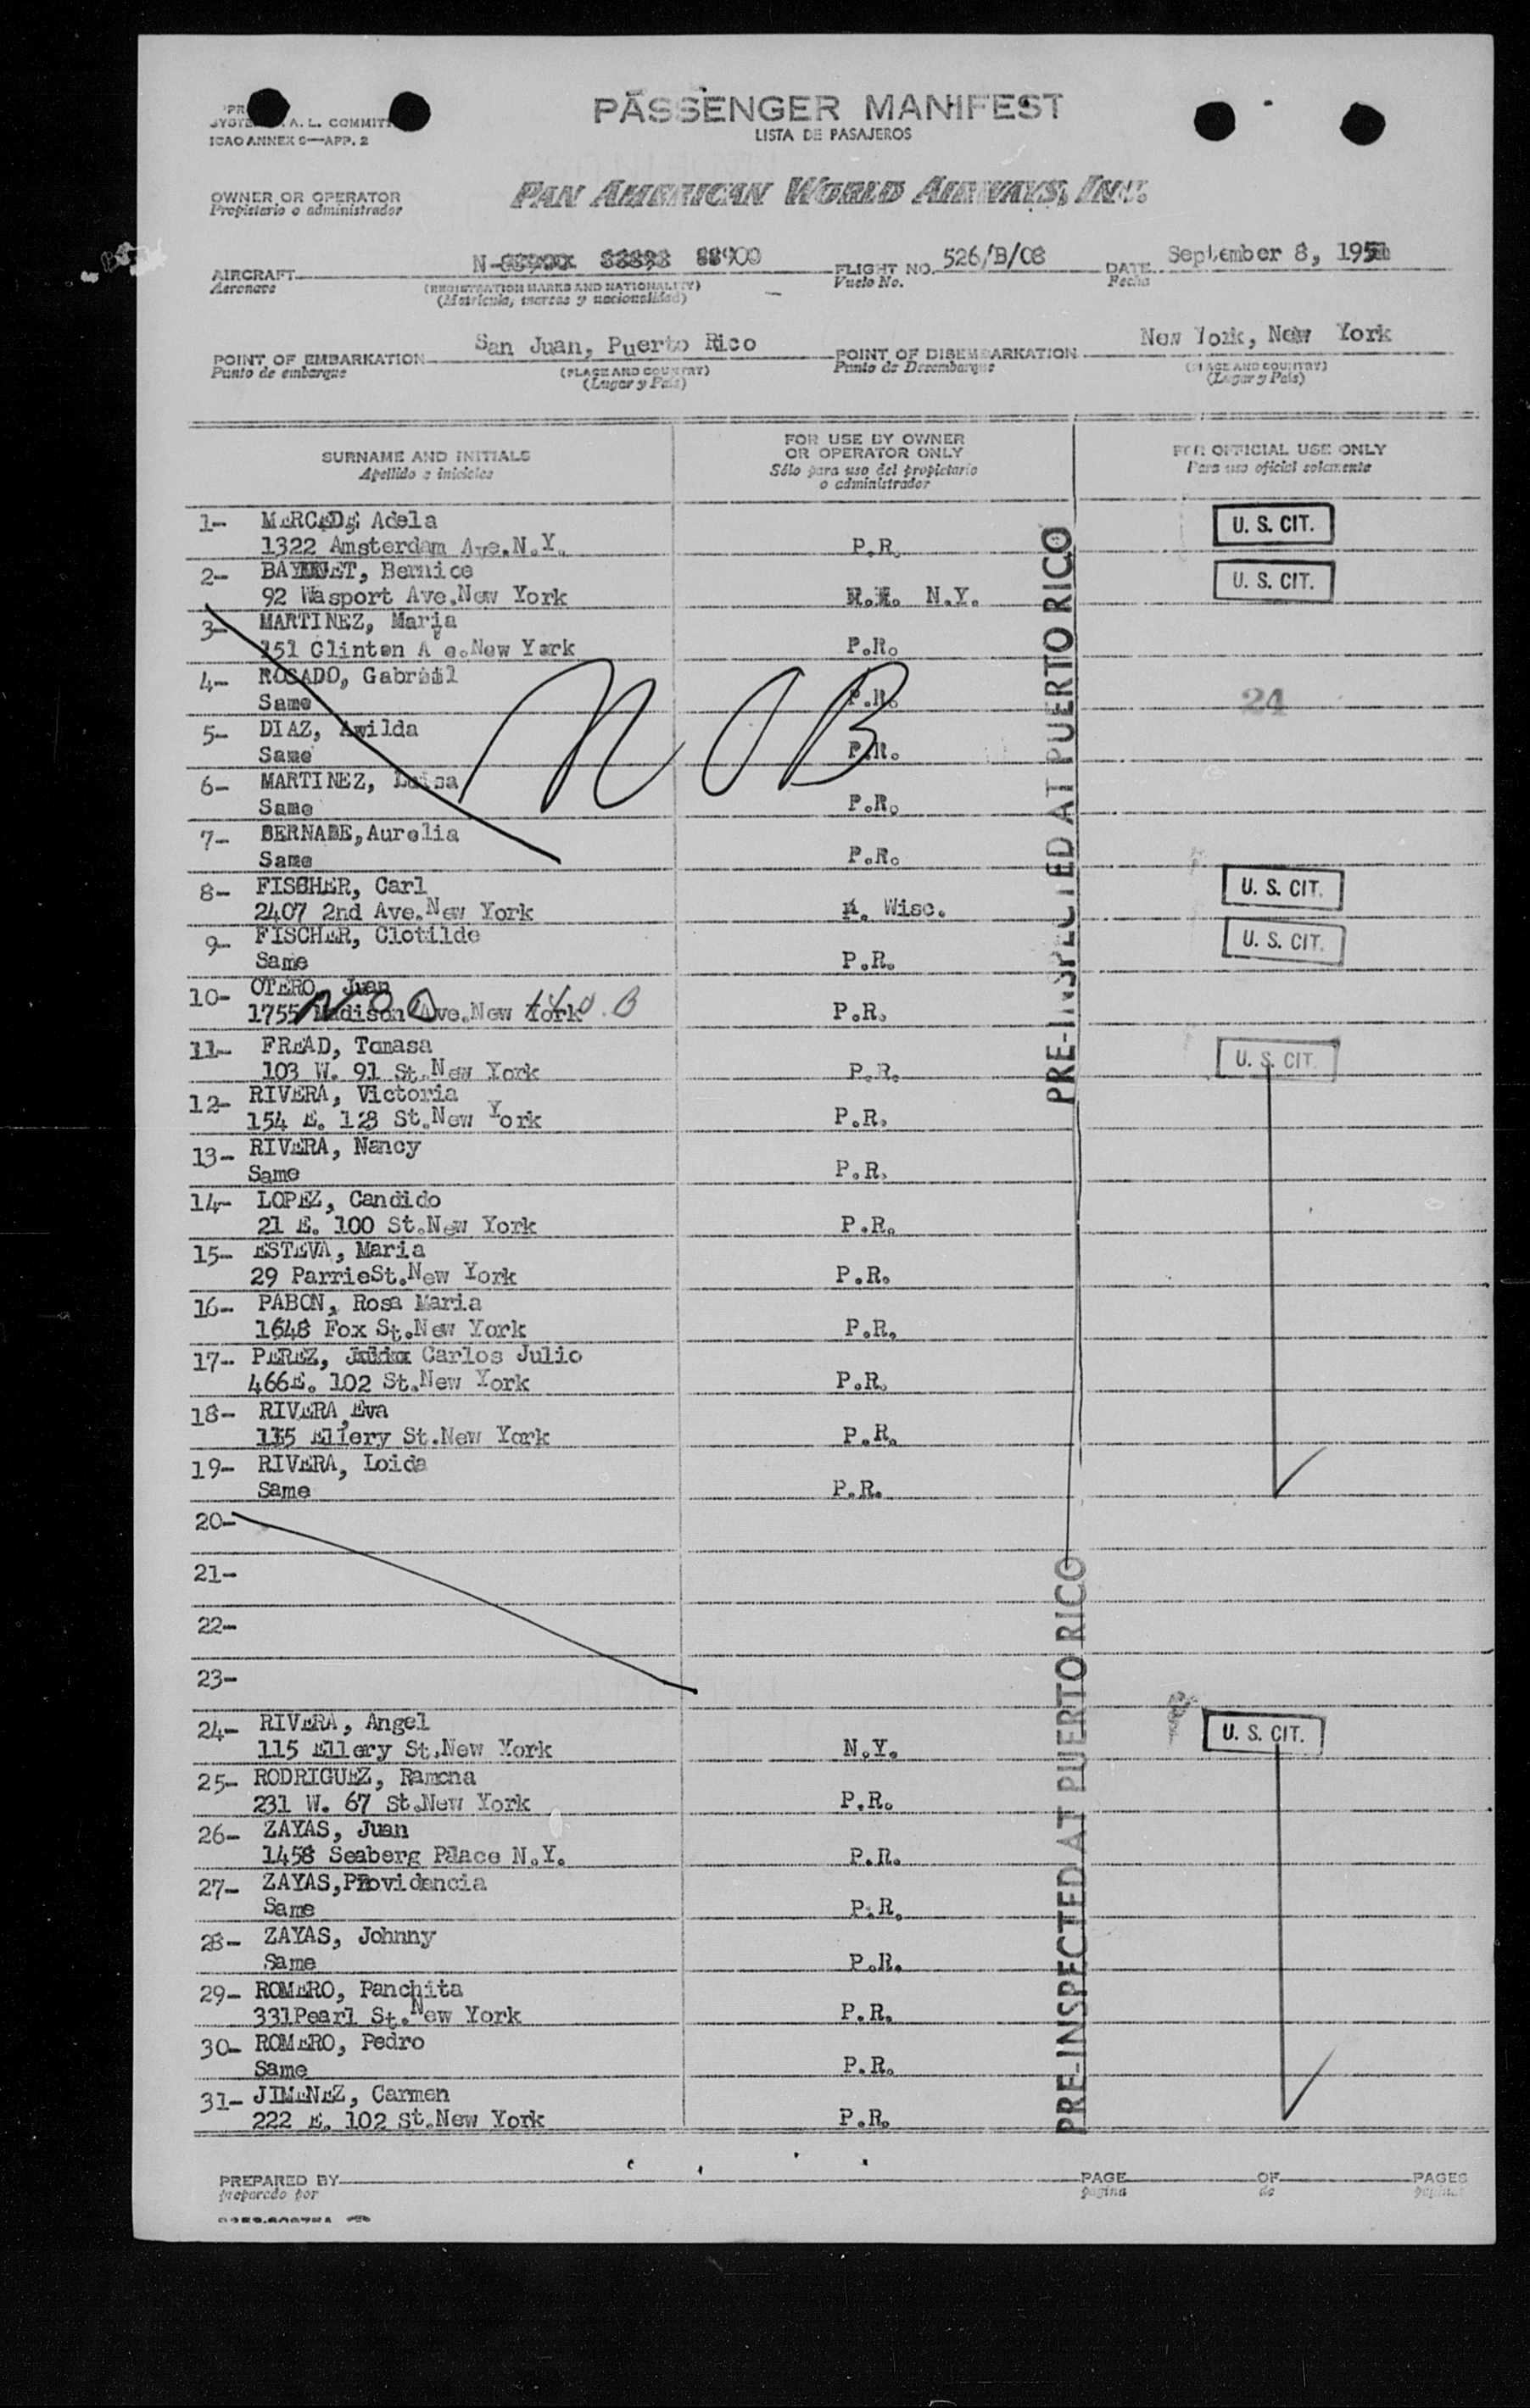 PASSENGER MANIFEST
LISTA DE PASAJEROS
A. L. COMMITT
ICAO ANNEX 9—APP. 2
OWNER OR OPERATOR
Propietario o administrador
PAN AMERICAN WORLD AIRWAYS, INC.
AIRCRAFT N- 88900
Aeronave
(REGISTRATION MARKS AND NATIONALITY)
(Matricula, marcas y nacionalidad)
FLIGHT NO. 526/B/08
Vuelo No.
DATE September 8, 195
Fecha
POINT OF EMBARKATION San Juan, Puerto Rico
Punto de embarque
(PLACE AND COUNTRY)
(Lugar y Pais)
POINT OF DISEMBARKATION New York, New York
Punto de Desembarque
(PLACE AND COUNTRY)
(Lugar y Pais)
SURNAME AND INITIALS
Apellido e iniciales
FOR USE BY OWNER
OR OPERATOR ONLY
Sólo para uso del propietario
o administrador
FOR OFFICIAL USE ONLY
Para uso oficial solamente
1- MERCEDE, Adela
1322 Amsterdam Ave.N.Y. P.R. U. S. CIT.
2- Bernice
92 Wasport Ave.New York N.Y. U. S. CIT.
3- MARTINEZ, Maria
151 Clinton A e.New York P.R.
4- ROSADO, Gabriel
Same P.R. 24
5- DIAZ, Awilda
Same P.R.
6- MARTINEZ, Luisa
Same P.R.
7- BERNABE,Aurelia
Same P.R.
NOB
8- FISCHER, Carl
2407 2nd Ave.New York Wisc. U. S. CIT.
9- FISCHER, Clotilde
Same P.R. U. S. CIT.
10- OTERO, Juan
1755 Madison Ave.New York P.R.
N.O.B
11- FREAD, Tomasa
103 W. 91 St.New York P.R. U. S. CIT.
12- RIVERA, Victoria
154 E. 128 St.New York P.R.
13- RIVERA, Nancy
Same P.R.
14- LOPEZ, Candido
21 E. 100 St.New York P.R.
15- ESTEVA, Maria
29 ParrieSt.New York P.R.
16- PABON, Rosa Maria
1648 Fox St.New York P.R.
17- PEREZ, Carlos Julio
466E. 102 St.New York P.R.
18- RIVERA,Eva
115 Ellery St.New York P.R.
19- RIVERA, Loida
Same P.R.
20-
21-
22-
23-
24- RIVERA, Angel
115 Ellery St.New York N.Y. U. S. CIT.
25- RODRIGUEZ, Ramona
231 W. 67 St.New York P.R.
26- ZAYAS, Juan
1458 Seaberg Place N.Y. P.R.
27- ZAYAS,Providencia
Same P.R.
28- ZAYAS, Johnny
Same P.R.
29- ROMERO, Panchita
331Pearl St.New York P.R.
30- ROMERO, Pedro
Same P.R.
31- JIMENEZ, Carmen
222 E. 102 St.New York P.R.
PRE-INSPECTED AT PUERTO RICO
PRE-INSPECTED AT PUERTO RICO
PREPARED BY
preparado por
PAGE OF PAGES
pagina de paginas